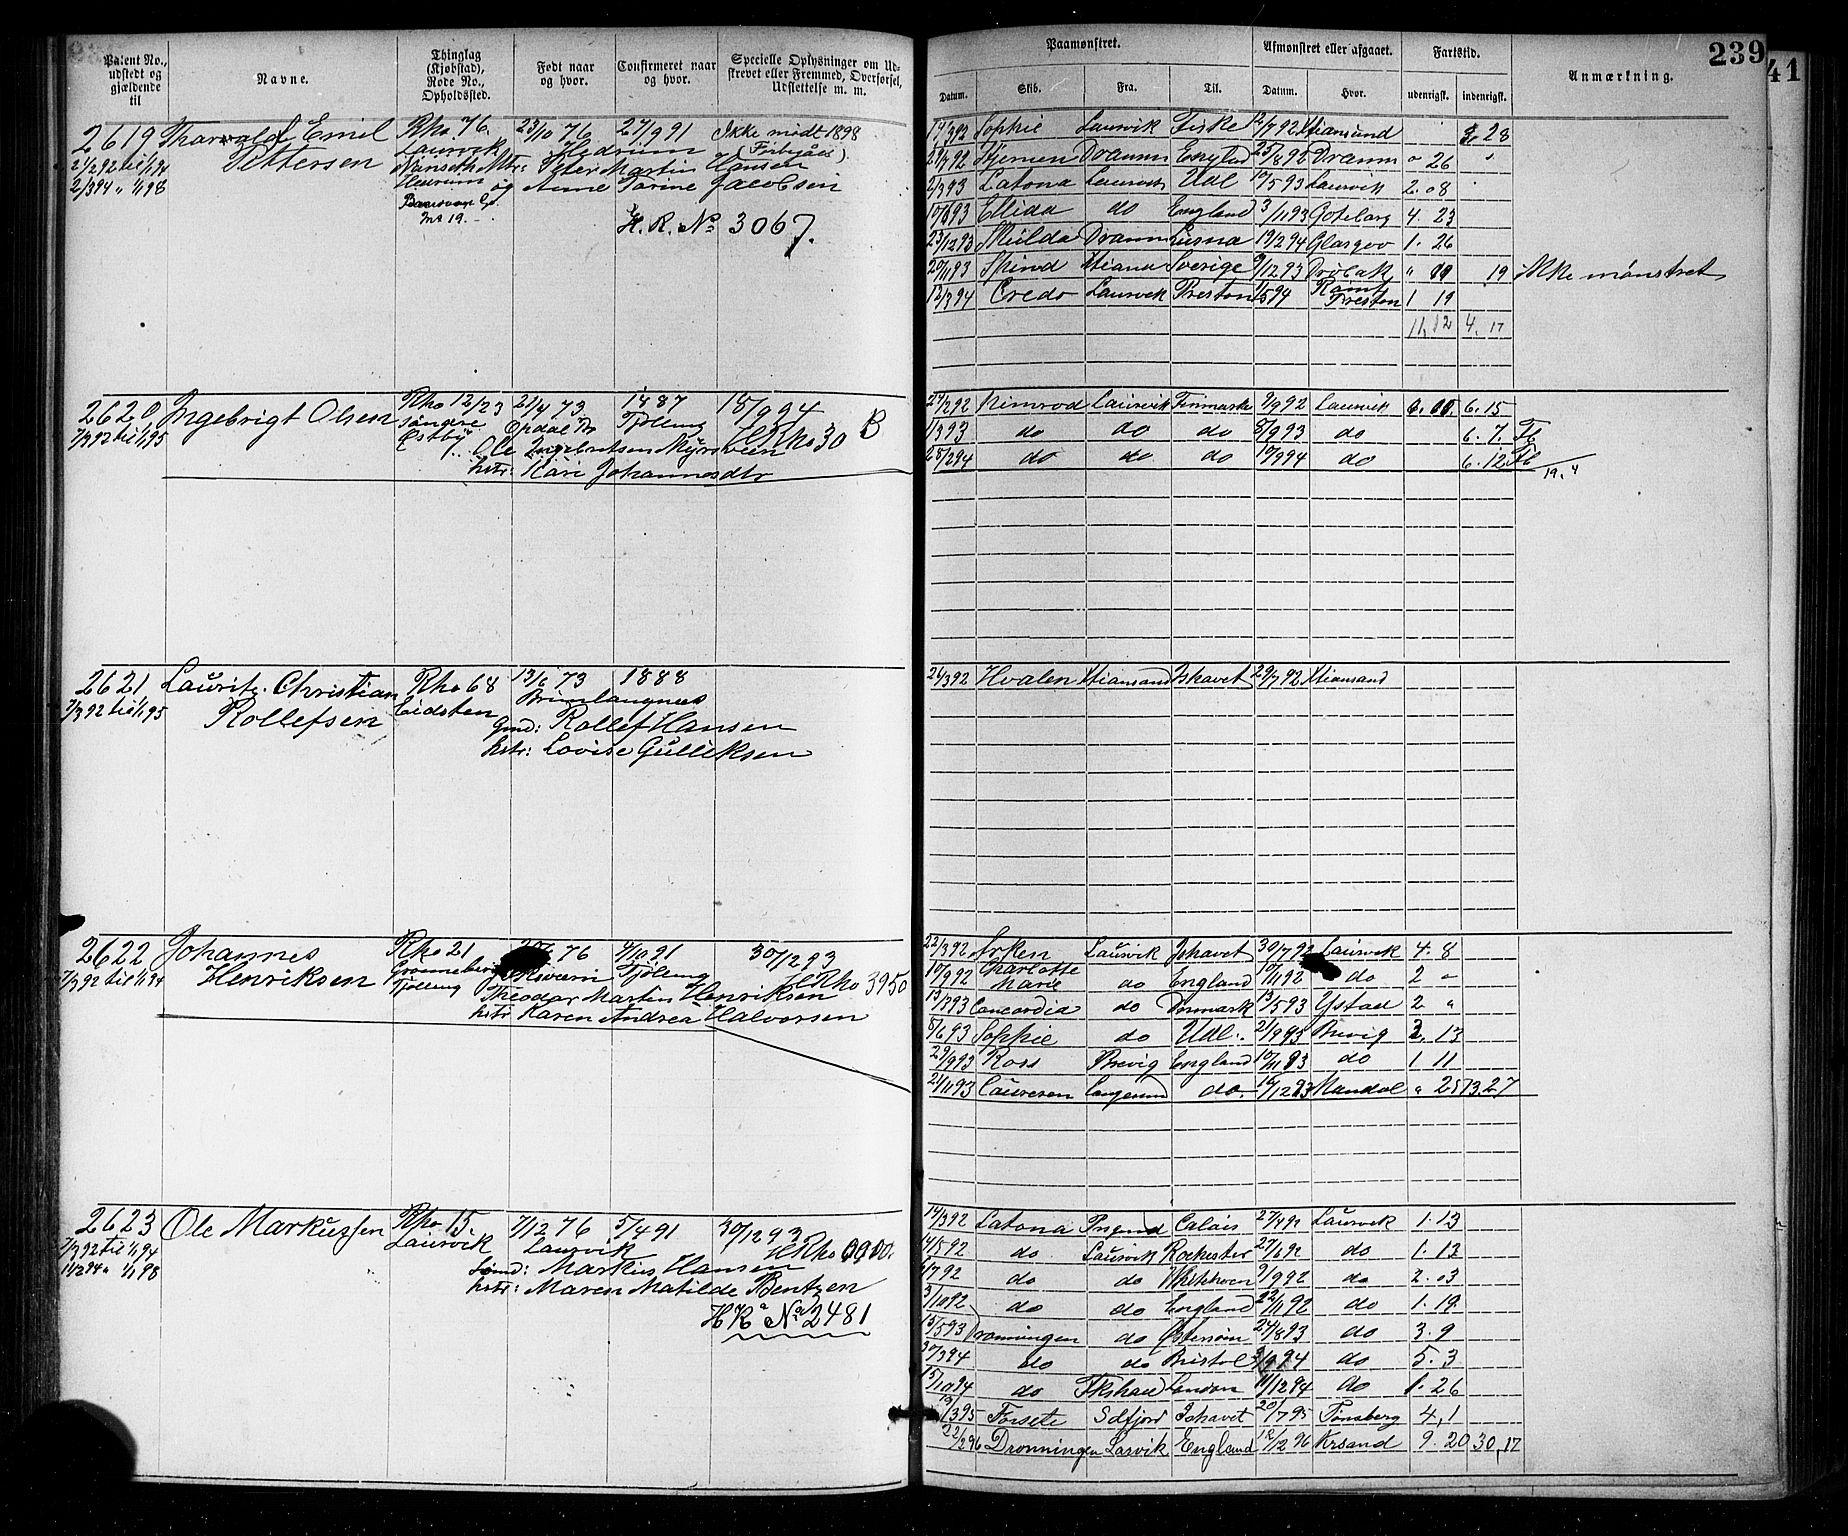 239
41
Patent No., udstedt og gjældende til
Navne.
Thinglag (Kjøbstad), Rode No., Opholdssted.
Født naar og hvor.
Confirmeret naar og hvor.
Specielle Oplysninger om Udskrevet eller Fremmed, Overførsel, Udslettelse m. m.
Paamønstret.
Afmønstret eller afgaaet.
Fartstid.
Anmærkning.
Datum. Skib. Fra. Til. Datum. Hvor. udenrigsk. indenrigsk.
2619 Tharvald Emil Rho 76. 23/10 76 27/9 91 Ikke mødt 1898
2/2 92 til 1/1 94 Pettersen Laurvik Hedrum
2/3 94 " 1/1 98 Peter Martin Hansen
Hedrum og Anne Torine Jacobsen
No 19.
H. R. No 3067.
14/3 92 Sophie Laurvik Fiske 12/7 92 Xtiansund 3. 28
Drammn England 25/8 92 Dramm " 26 "
2/3 93 Latona Laurvik Udl 10/5 93 Laurvik 2. 08
Ellida do England 3/11 93 Gøteborg 4. 23
23/12 93 Hulda Dramm 19/2 94 Glasgov 1. 26
20/11 93 Xtiania Sverige 9/12 93 Drøbak 19 ikke mønstret
12/3 94 Credo Laurvik Preston 1/5 94 Rømt Preston 1 19
11, 12 4. 17
2620 Ingebrigt Olsen Rho 12/23 21/4 73 1887 18/9 94 B
7/3 92 til 1/1 95 Søndre Opdal Tjølling HRho 30
Østby Ole Ingebritsen Myrsveen
hstr: Kari Johannesdtr
24/2 92 Nimrod Laurvik Finmarken 9/9 92 Laurvik 6. 15
1/3 93 do do do 8/9 93 do 6. 7.
28/2 94 do do do 10/9 94 do 6. 12
19. 4
2621 Lauritz Christian Rho 68 13/6 73 1888
7/3 92 til 1/1 95 Rollefsen Eidsten Brunlangnæs
Gmd: Rollef Hansen
hstr: Lovise Gulliksen
24/3 92 Hvalen Xtiansand Ishavet 29/7 92 Xtiansand
2622 Johannes Rho 21 76 4/10 91 30/12 93
7/3 92 til 1/1 94 Henriksen Tjølling Tjølling HRho 3950
Theodor Martin Henriksen
hstr Karen Andrea Halvorsen
22/3 92 Ørken Laurvik Ishavet 30/7 92 Laurvik 4. 8
10/9 92 Charlotte Marie do England 10/11 92 do 2 "
13/3 93 Concordia do Danmark 13/5 93 Ystad 2 "
8/6 93 Sophie do Udl. 21/9 93 Brevig 3. 13
29/9 93 Ross Brevig England 10/11 93 do 1 11
21/11 93 Langesund do. 16/12 93 Mandal " 25 13. 27
2623 Ole Markussen Rho 15. 7/12 76 5/4 91 30/12 93
7/3 92 til 1/1 94 Laurvik Laurvik HRho
1/2 94 " 1/1 98 Sømd: Markus Hansen
hstr: Maren Matilde Bentzen
H R No 2481
14/3 92 Latona Calais 27/4 92 Laurvik 1. 13
14/5 92 do Laurvik Rochester 27/6 92 do 1. 13
6/7 92 do do 9/9 92 do 2. 03
3/10 92 do do England 22/11 92 do 1. 19
15/5 93 Dronningen do Østersøen 24/8 93 do 3. 9
30/3 94 do do Bristol do 5. 3
15/10 94 do Fkshald London 11/12 94 do 1. 26
19/3 95 Forsete Sdfjord Ishavet 20/7 95 Tønsberg 4, 1
22/2 96 Dronningen Larvik England 12/12 96 Krsand 9. 20 30, 17